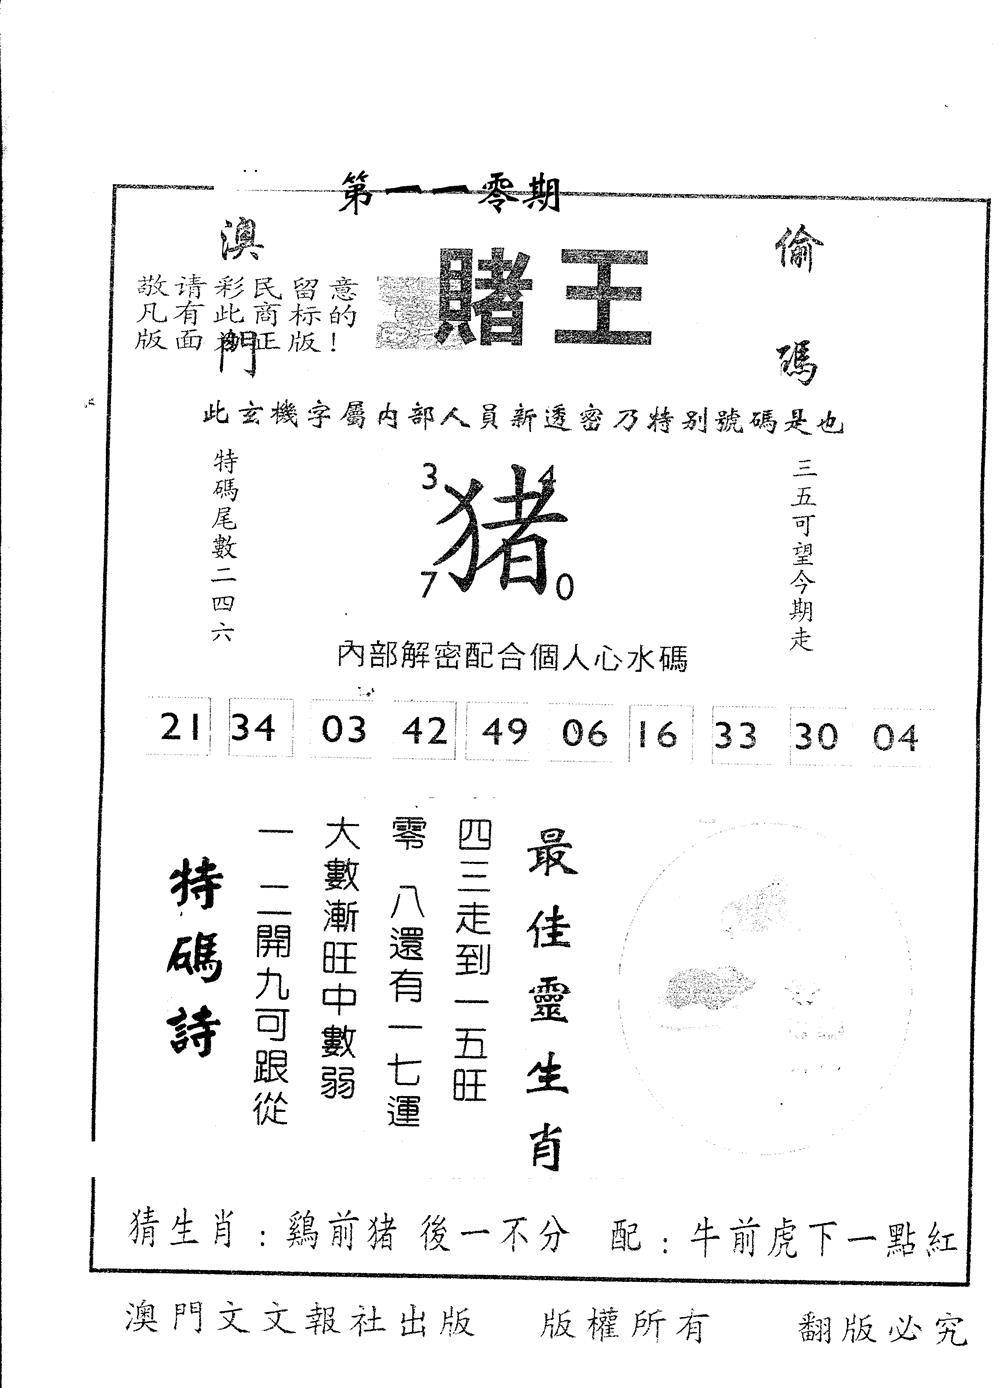 第一一零期
澳門
賭王
偷碼
敬请彩民留意
凡有此商标的
版面為正版!
此玄機字屬內部人員新透密乃特别號碼是也
特碼尾數二四六
3 4
猪
7 0
三五可望今期走
內部解密配合個人心水碼
21 34 03 42 49 06 16 33 30 04
最佳靈生肖
四三走到一五旺
零八還有一七運
大數漸旺中數弱
一二開九可跟從
特碼詩
猜生肖:鷄前猪後一不分 配:牛前虎下一點紅
澳門文文報社出版 版權所有 翻版必究